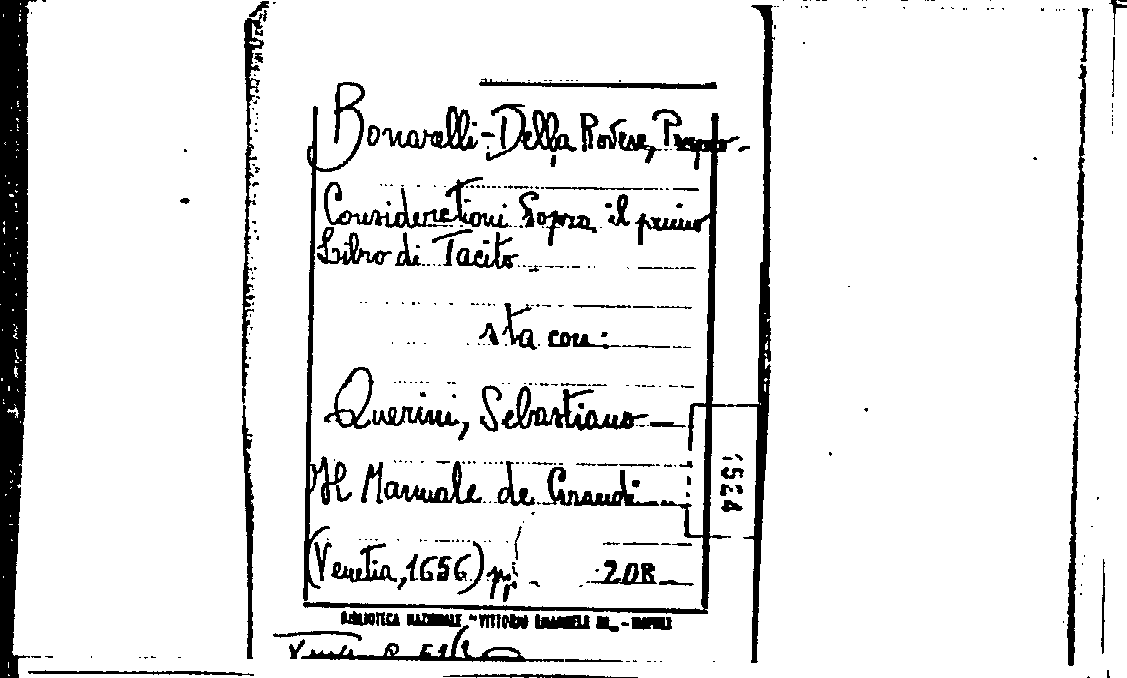 Bonarelli-Della Rovere, Prospero.
Considerationi Sopra il primo
Libro di Tacito
sta con:
Querini, Sebastiano
Il Manuale de Grandi
(Venetia, 1656) pp. 208
1524
BIBLIOTECA NAZIONALE "VITTORIO EMANUELE III" - NAPOLI